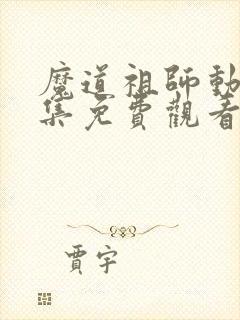 魔道祖師動
集免費觀看
賈宇